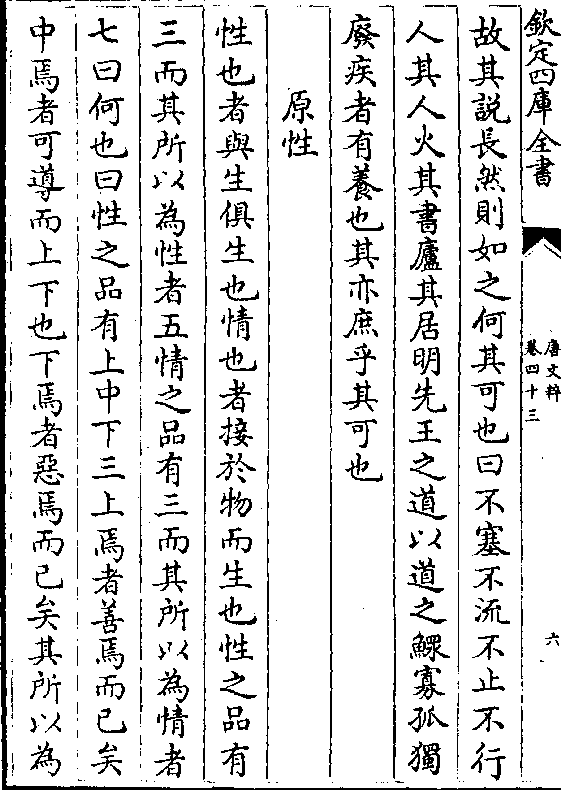 欽定四庫全書
唐文粹
卷四十三
六
故其說長然則如之何其可也曰不塞不流不止不行
人其人火其書廬其居明先王之道以道之鰥寡孤獨
廢疾者有養也其亦庶乎其可也
原性
性也者與生俱生也情也者接於物而生也性之品有
三而其所以為性者五情之品有三而其所以為情者
七曰何也曰性之品有上中下三上焉者善焉而已矣
中焉者可導而上下也下焉者惡焉而已矣其所以為